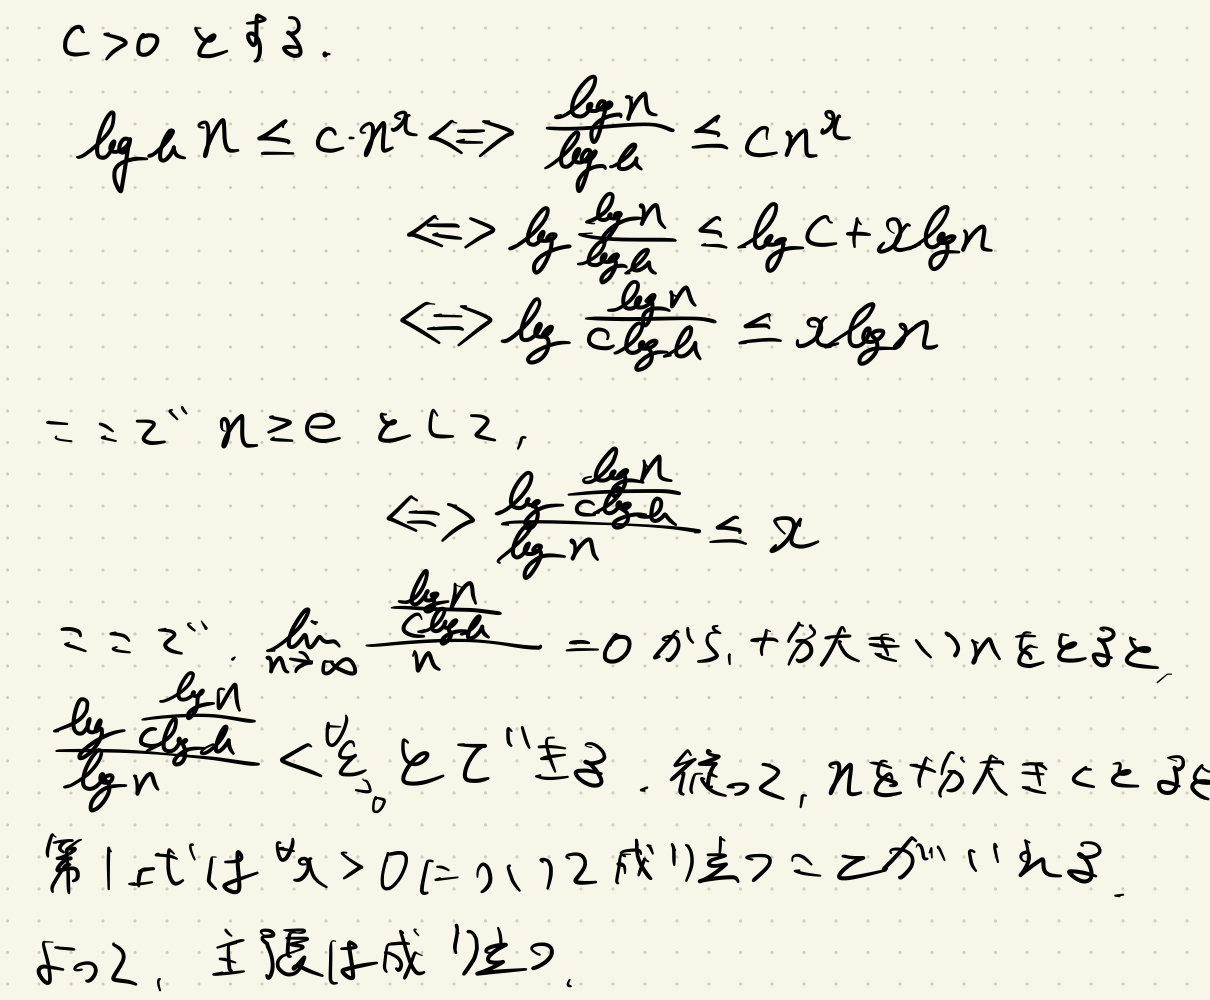 c>0 とする.
log_a n ≤ c·n^x <=> \frac{log n}{log a} ≤ cn^x
<=> log \frac{log n}{log a} ≤ log c + x log n
<=> log \frac{log n}{c log a} ≤ x log n
ここで n≥e として,
<=> \frac{log \frac{log n}{c log a}}{log n} ≤ x
ここで. lim_{n→∞} \frac{\frac{log n}{c log a}}{n} =0 から, 十分大きいnをとると,
\frac{log \frac{log n}{c log a}}{log n} < ∀ε>0 とできる. 従って, nを十分大きくとると
第1式は ∀x>0 について成り立つことがいえる.
よって, 主張は成り立つ.